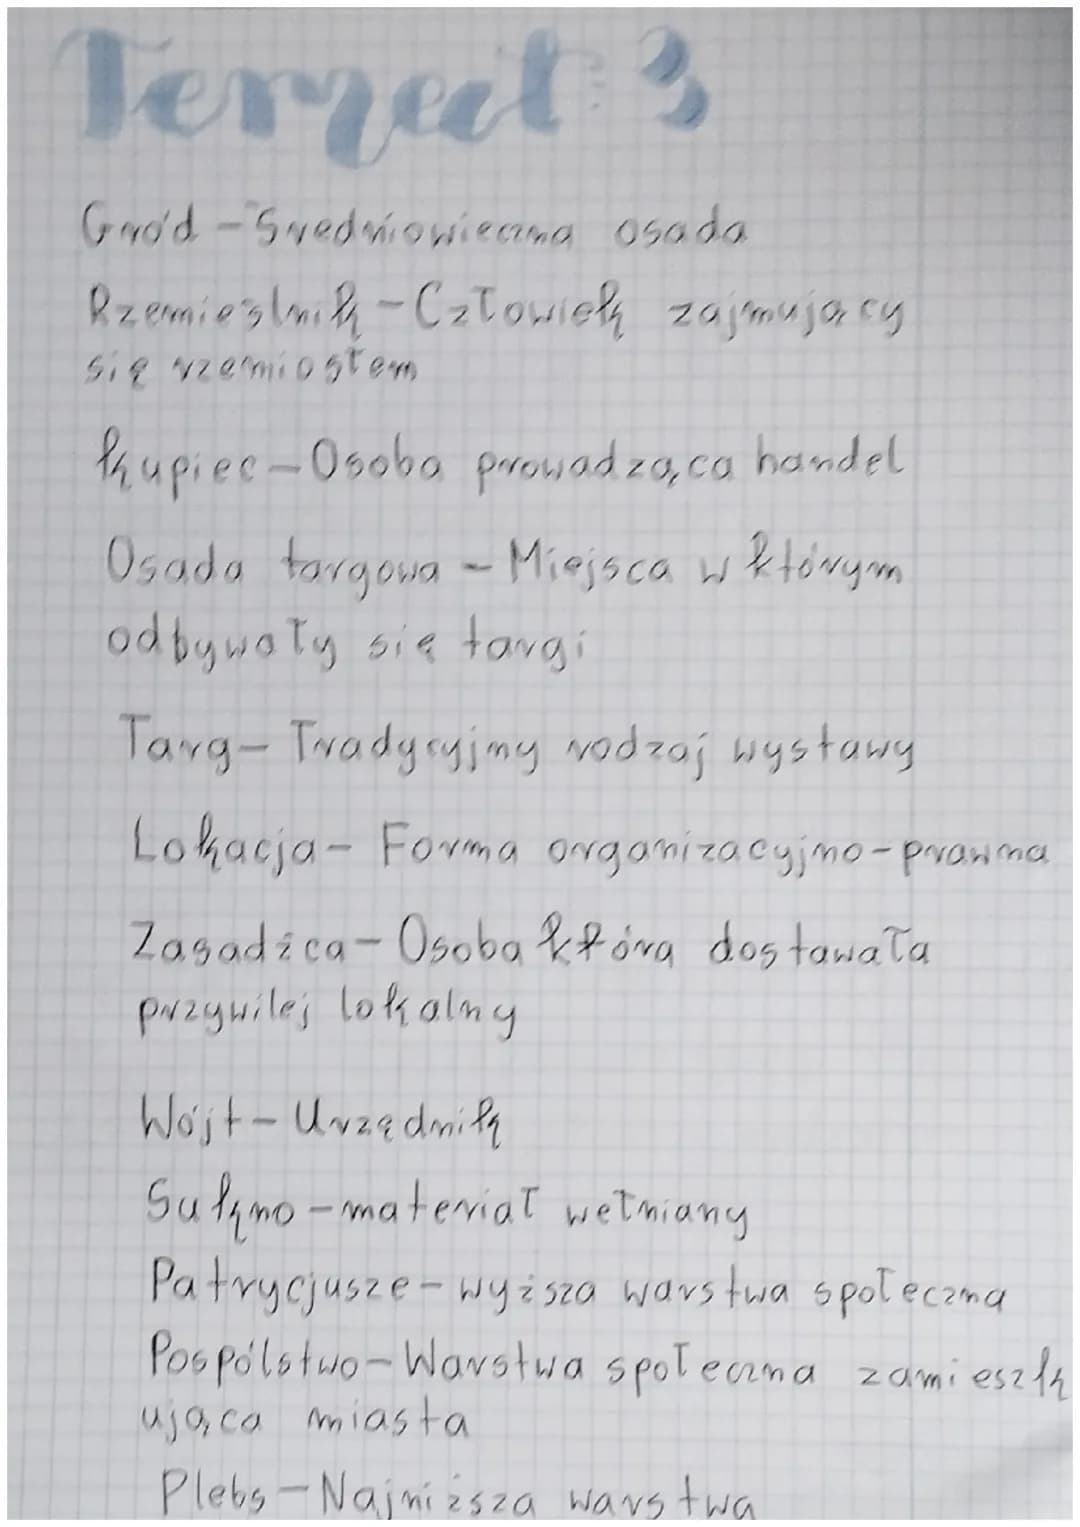 Temat: 3
Gród - Sredniowieczna osada
Rzemieślnik - Człowiek zajmujący
się rzemiosłem
kupiec - Osoba prowadząca handel
Osada targowa - Miejsca w którym
odbywały się targi
Targ - Tradycyjny rodzaj wystawy
Lokacja - Forma organizacyjno-prawna
Zasadźca - Osoba która dostawała
przywilej lokalny
Wójt - Urzędnik
Sukno - materiał wełniany
Patrycjusze - wyższa warstwa społeczna
Pospólstwo - Warstwa społeczna zamieszk
ująca miasta
Plebs - Najniższa warstwa